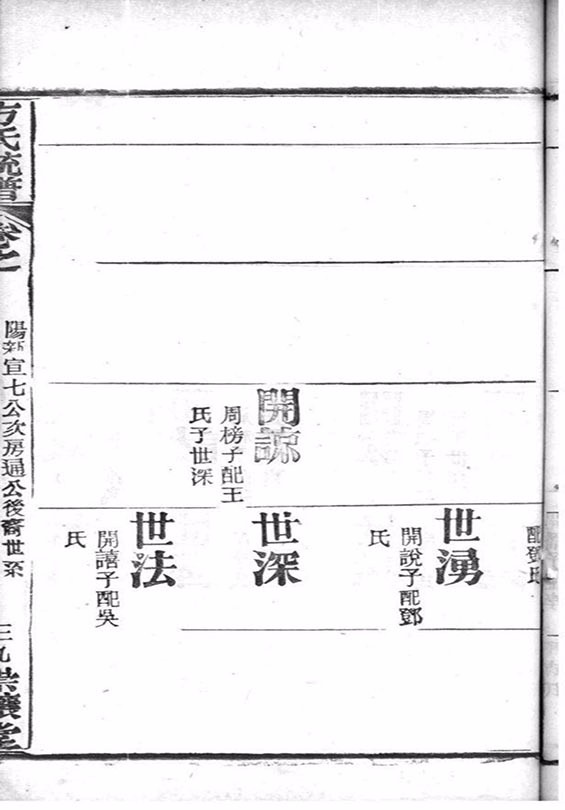 配鄧氏
開諒
周榜子配王
氏子世深
世湧
開說子配鄧
氏
世深
世法
開譆子配吳
氏
方氏統譜
卷之
陽新宣七公次房通公後裔世系
三九